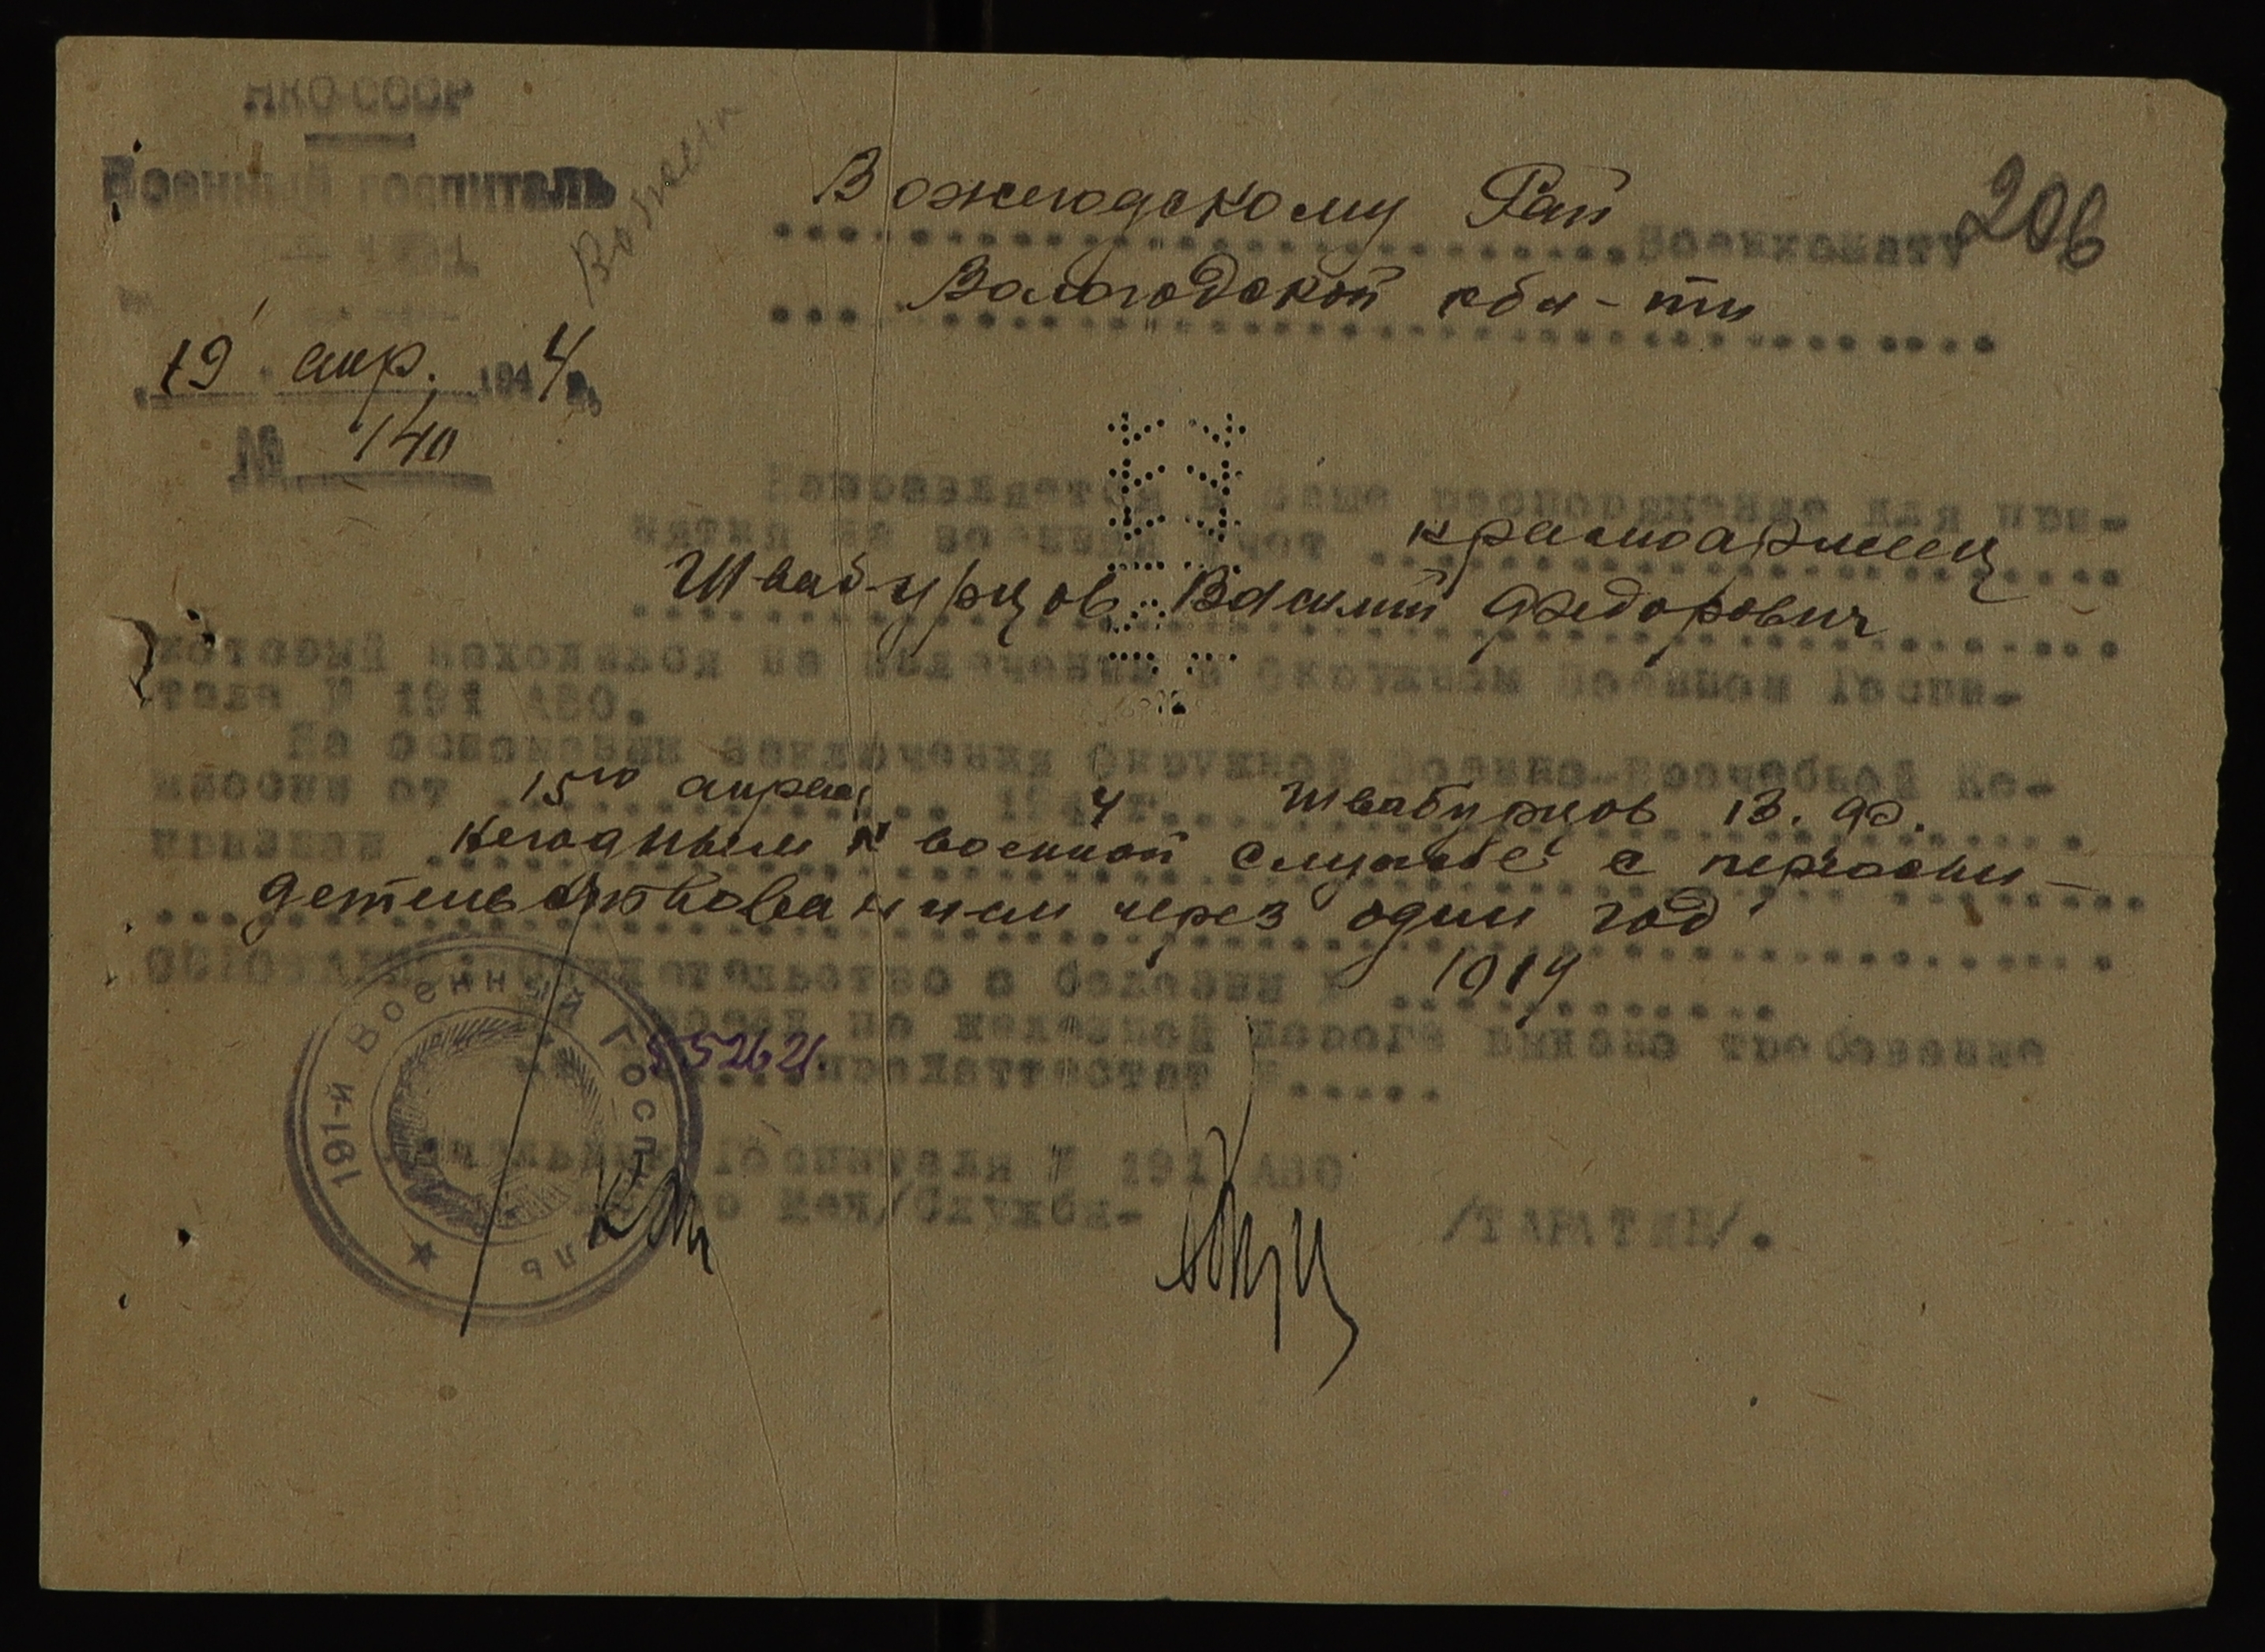 НКО СССР
Военный госпиталь
191
19 апр. 1944 г.
№ 140
Вожегодскому Рай Военкомату
206
Вологодской обл-ти
Направляется в Ваше распоряжение для при-
нятия на военный учет красноармеец
Швабурцов Василий Федорович
который находился на излечении в Окружном Военном Госпи-
тале № 191 АВО.
На основании заключения Окружной Военно-Врачебной Ко-
миссии от 15го апреля 1944 г. Швабурцов В. Ф.
признан негодным к военной службе с переосви-
детельствованием через один год
ОСНОВАНИЕ: Свидетельство о болезни № 1019
проезд по железной дороге выдано требование
55262. продаттестат №.....
Начальник Госпиталя № 191 АВО
Мед/Службы- /ТАРАТИН/.
191-й Военный Госпиталь